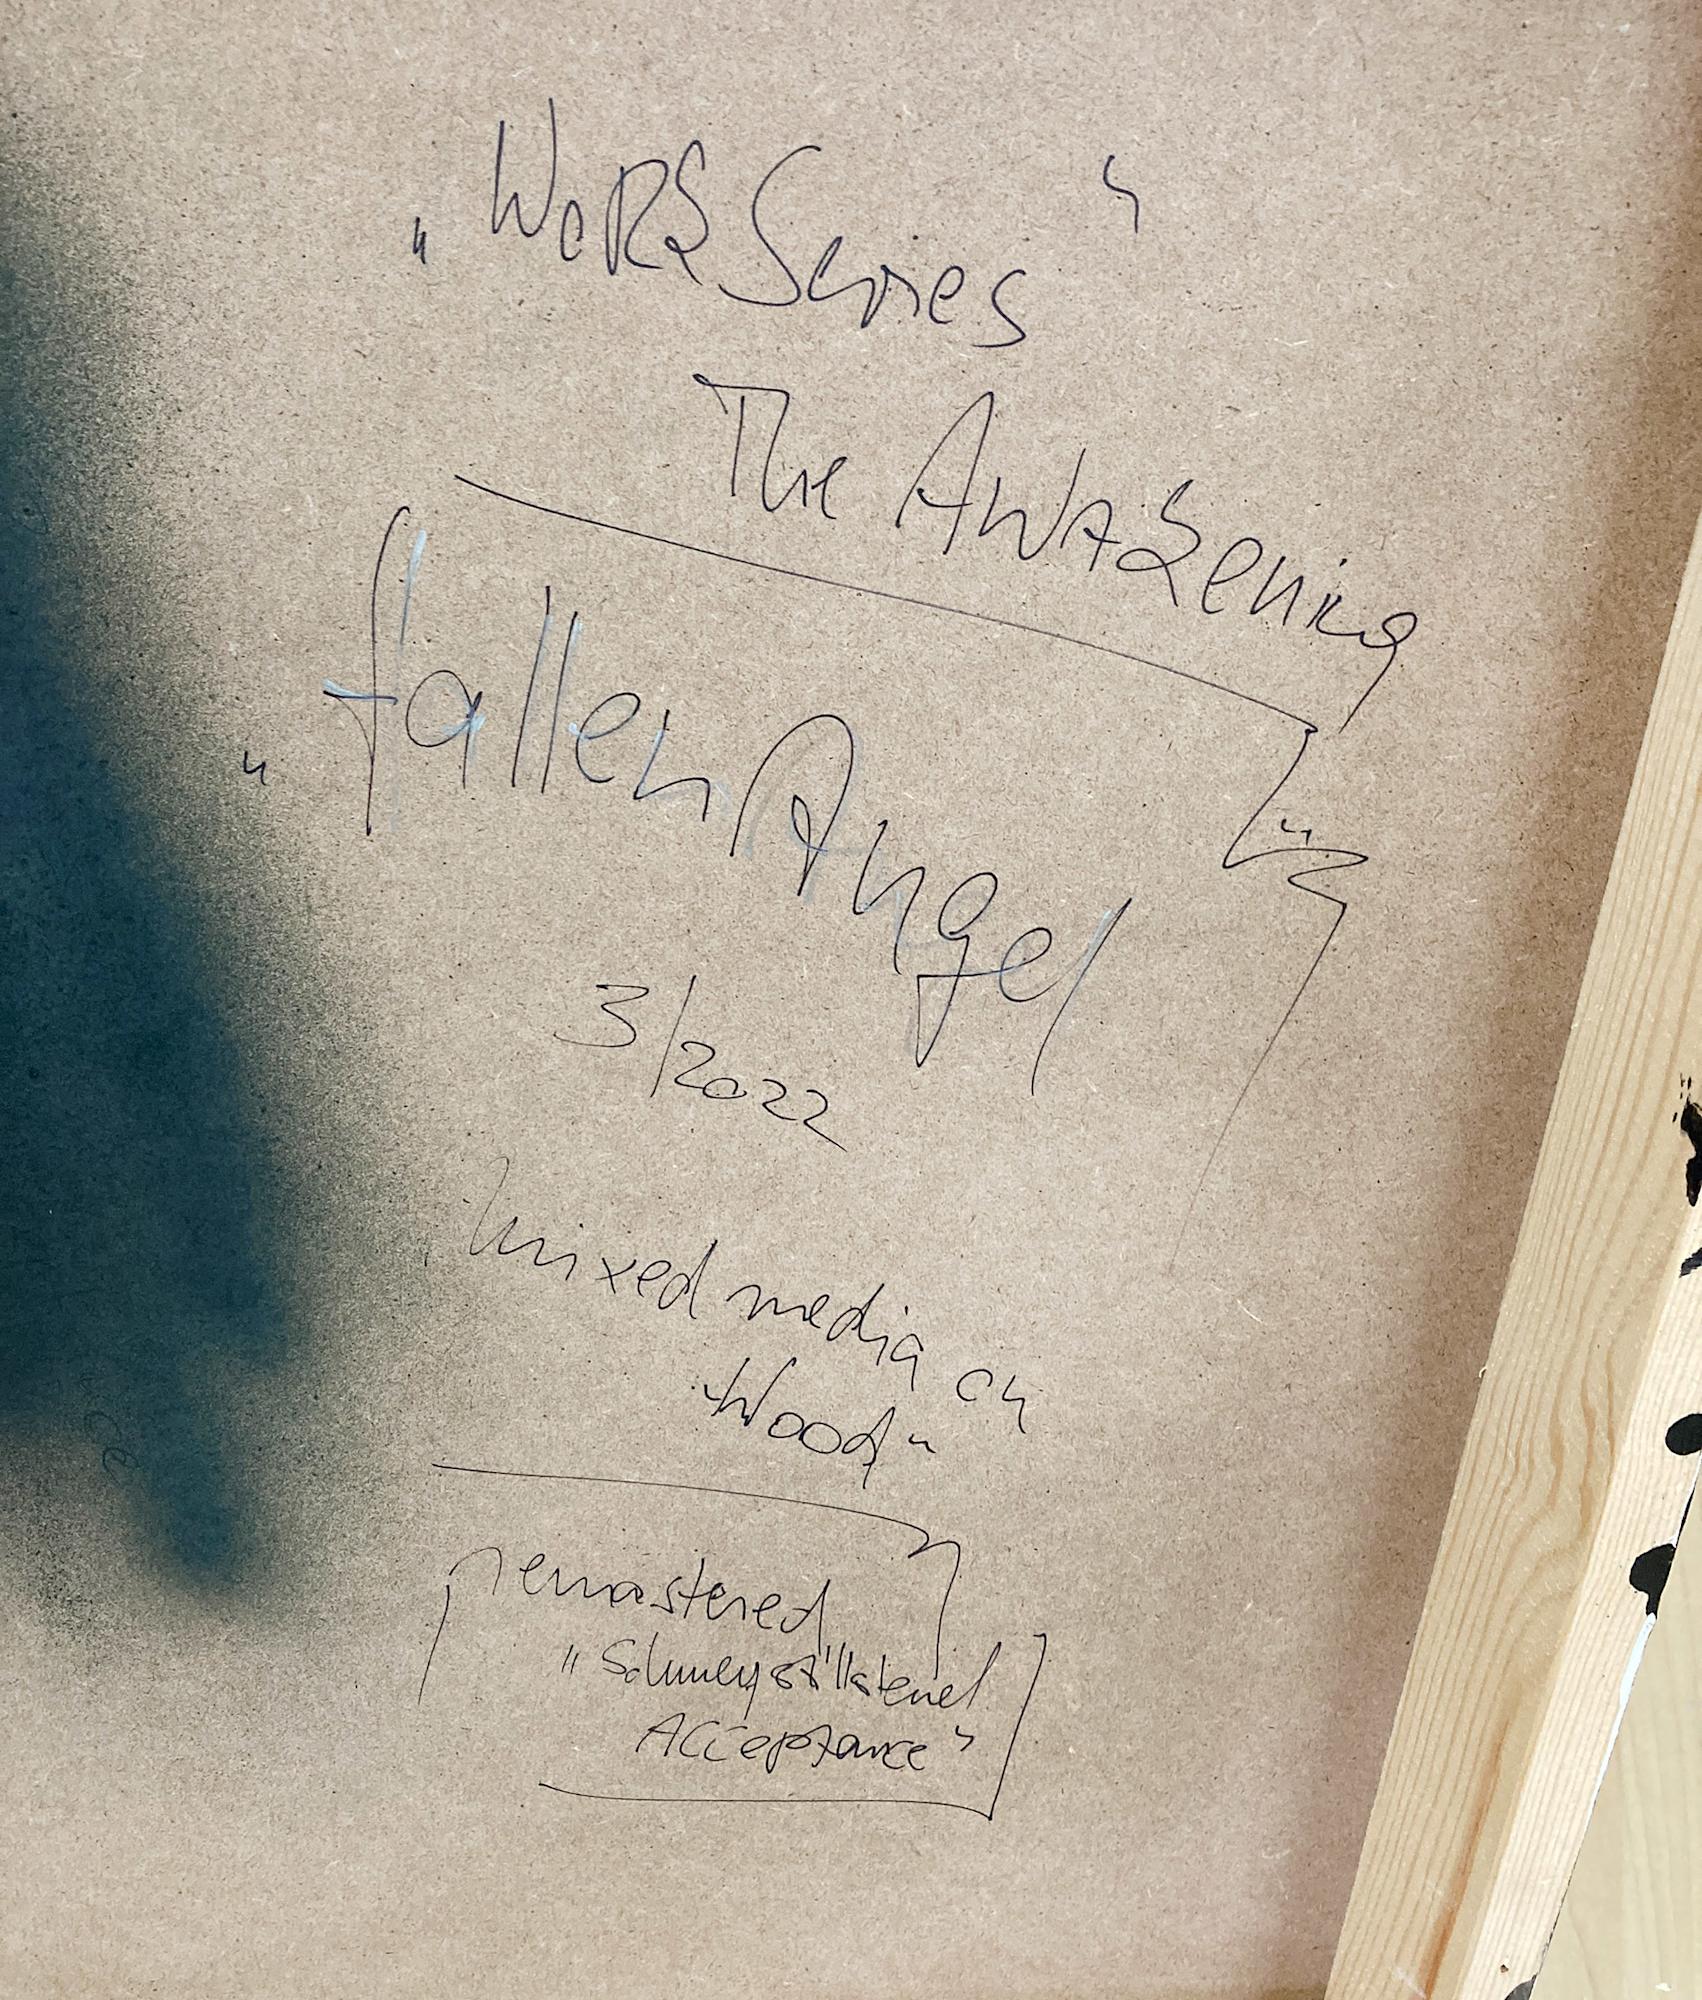 „Work Series"
The Awakening
„fallen Angel"
3/2022
mixed media on
Wood"
remastered
Acceptance"